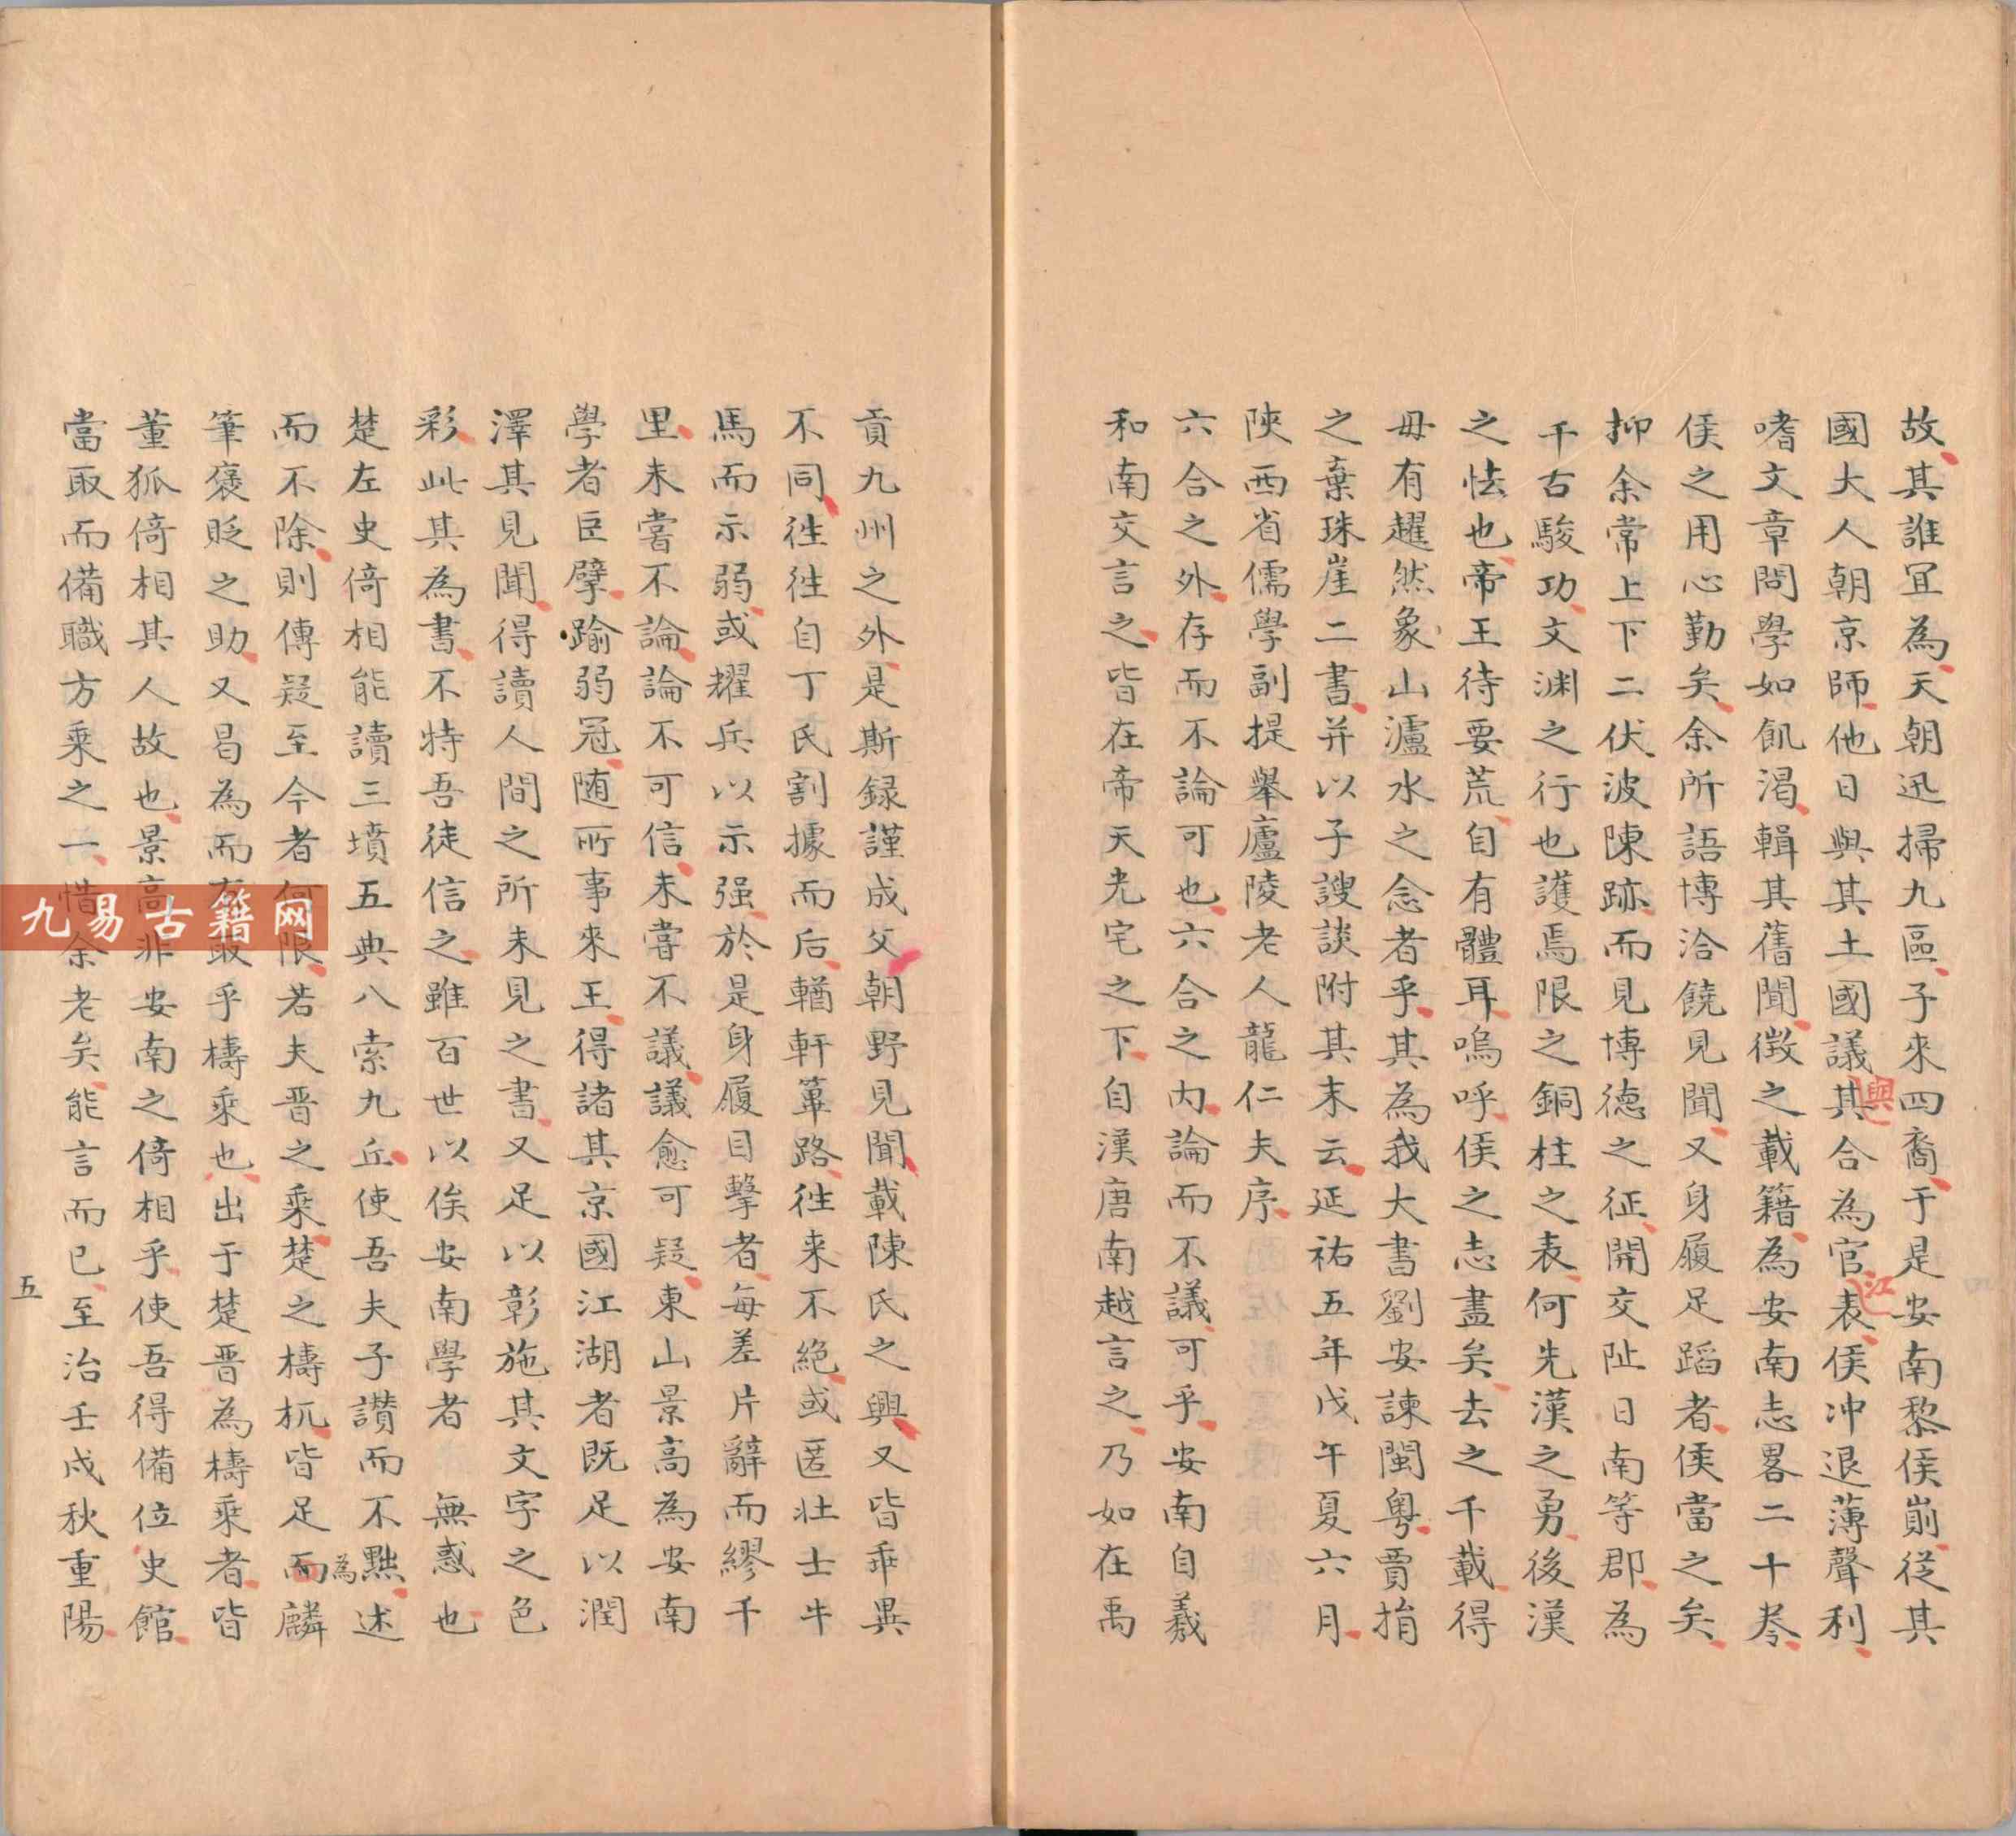 故其誰冝為天朝迅掃九區子來四裔于是安南黎侯崱從其
國大人朝京師他日與其土國議其合為官表侯冲退薄聲利
與
江
嗜文章問學如飢渴輯其舊聞徴之載籍為安南志畧二十卷
侯之用心勤矣余所語博洽饒見聞又身履足蹈者侯當之矣
抑余常上下二伏波陳跡而見博德之征開交阯日南等郡為
千古駿功文渊之行也護焉限之銅柱之表何先漢之勇後漢
之怯也帝王待要荒自有體耳嗚呼侯之志盡矣去之千載得
毋有趯然象山瀘水之念者乎其為我大書劉安諫閩粤賈捐
之棄珠崖二書并以子謏談附其末云延祐五年戊午夏六月
陝西省儒學副提舉廬陵老人龍仁夫序
六合之外存而不論可也六合之内論而不議可乎安南自羲
和南交言之皆在帝天光宅之下自漢唐南越言之乃如在禹
貢九州之外是斯録謹成父朝野見聞載陳氏之興又皆乖異
不同徃徃自丁氏割據而后輶軒蓽路徃来不絶或匿壮士牛
馬而示弱或耀兵以示强於是身履目擊者每差片辭而繆千
里未嘗不論論不可信未嘗不議議愈可疑東山景高為安南
學者巨擘踰弱冠随所事來王得諸其京國江湖者既足以潤
澤其見聞得讀人間之所未見之書又足以彰施其文字之色
彩此其為書不特吾徒信之雖百世以俟安南學者 無惑也
楚左史倚相能讀三墳五典八索九丘使吾夫子讃而不黜述
為
而不除則傳疑至今者何限若夫晋之乘楚之檮杌皆足而麟
筆褒貶之助又曷為而有取乎檮乘也出于楚晋為檮乘者皆
董狐倚相其人故也景高非安南之倚相乎使吾得備位史館
當取而備職方乘之一惜余老矣能言而已至治壬戌秋重陽
五
九易古籍网